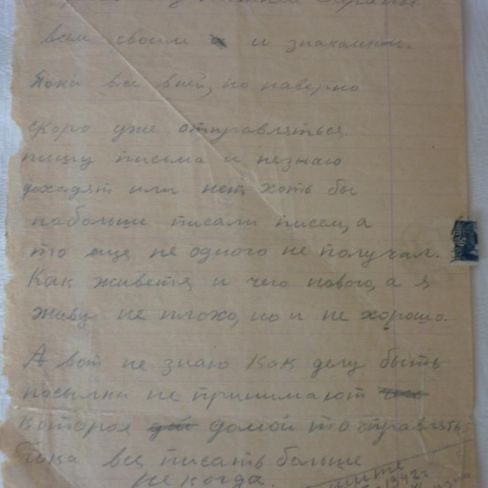 всем своим и и знакомым.
Пока все
но наверно
скоро уже отправляться
пишу письма и незнаю
доходят или нет, хоть бы
побольше писали писем, а
то еще не одного не получал.
Как живете, и чего нового, а я
живу не плохо, но и не хорошо.
А вот не знаю как делу быть
посылки не принимают
которая домой то отправлять
Пока все, писать больше
некогда.
пишите
1942 г